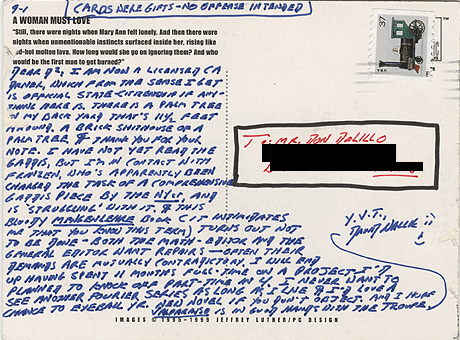 9-1
CARDS DERE GIFTS - NO OFFENSE INTENDED
A WOMAN MUST LOVE
"Still, there were nights when Mary Ann felt lonely. And then there
were nights when unmentionable instincts surfaced inside her, rising like
red-hot molten lava. How long would she go on ignoring them? And who
would be the first man to get burned?"
37
USA
DEAR D2, I AM NOW A LICENSED CA
DRIVER, WHICH FROM THE SENSE I GET
IS OFFICIAL STATE-CITIZENSHIP IF ANY-
THING HERE IS. THERE IS A PALM TREE
IN MY BACK YARD THAT'S 11 1/2 FEET
AROUND. A BRICK SHITHOUSE OF A
PALM TREE. THANK YOU FOR YOUR
NOTE. I HAVE NOT YET READ THE
GADDIS, BUT I'M IN CONTACT WITH
FRANZEN, WHO'S APPARENTLY BEEN
CHARGED THE TASK OF A COMPREHENSIVE
GADDIS PIECE BY THE NYer, AND
IS 'STRUGGLING' WITH IT. THIS
BLOODY MANGENLEHRE BOOK (IT INTIMIDATES
ME THAT YOU KNOW THIS TERM) TURNS OUT NOT
TO BE DONE - BOTH THE MATH-EDITOR AND THE
GENERAL EDITOR WANT REPAIRS - OFTEN THEIR
DEMANDS ARE MUTUALLY CONTRADICTORY. I WILL END
UP HAVING SPENT 11 MONTHS FULL-TIME ON A PROJECT I'D
PLANNED TO KNOCK OFF PART-TIME IN 4. I NEVER WANT TO
SEE ANOTHER FOURIER SERIES AS LONG AS I LIVE. I'D LOVE A
CHANCE TO EYEBALL YR. NEW NOVEL IF YOU DON'T OBJECT. AND I HOPE
VALPARAISO IS IN GOOD HANDS WITH THE TROUPE,
TO: MR. DON DELILLO
Y.V.T.,
DAVE WALLACE
IMAGES © 1995-1999 JEFFREY LUTHER/PC DESIGN